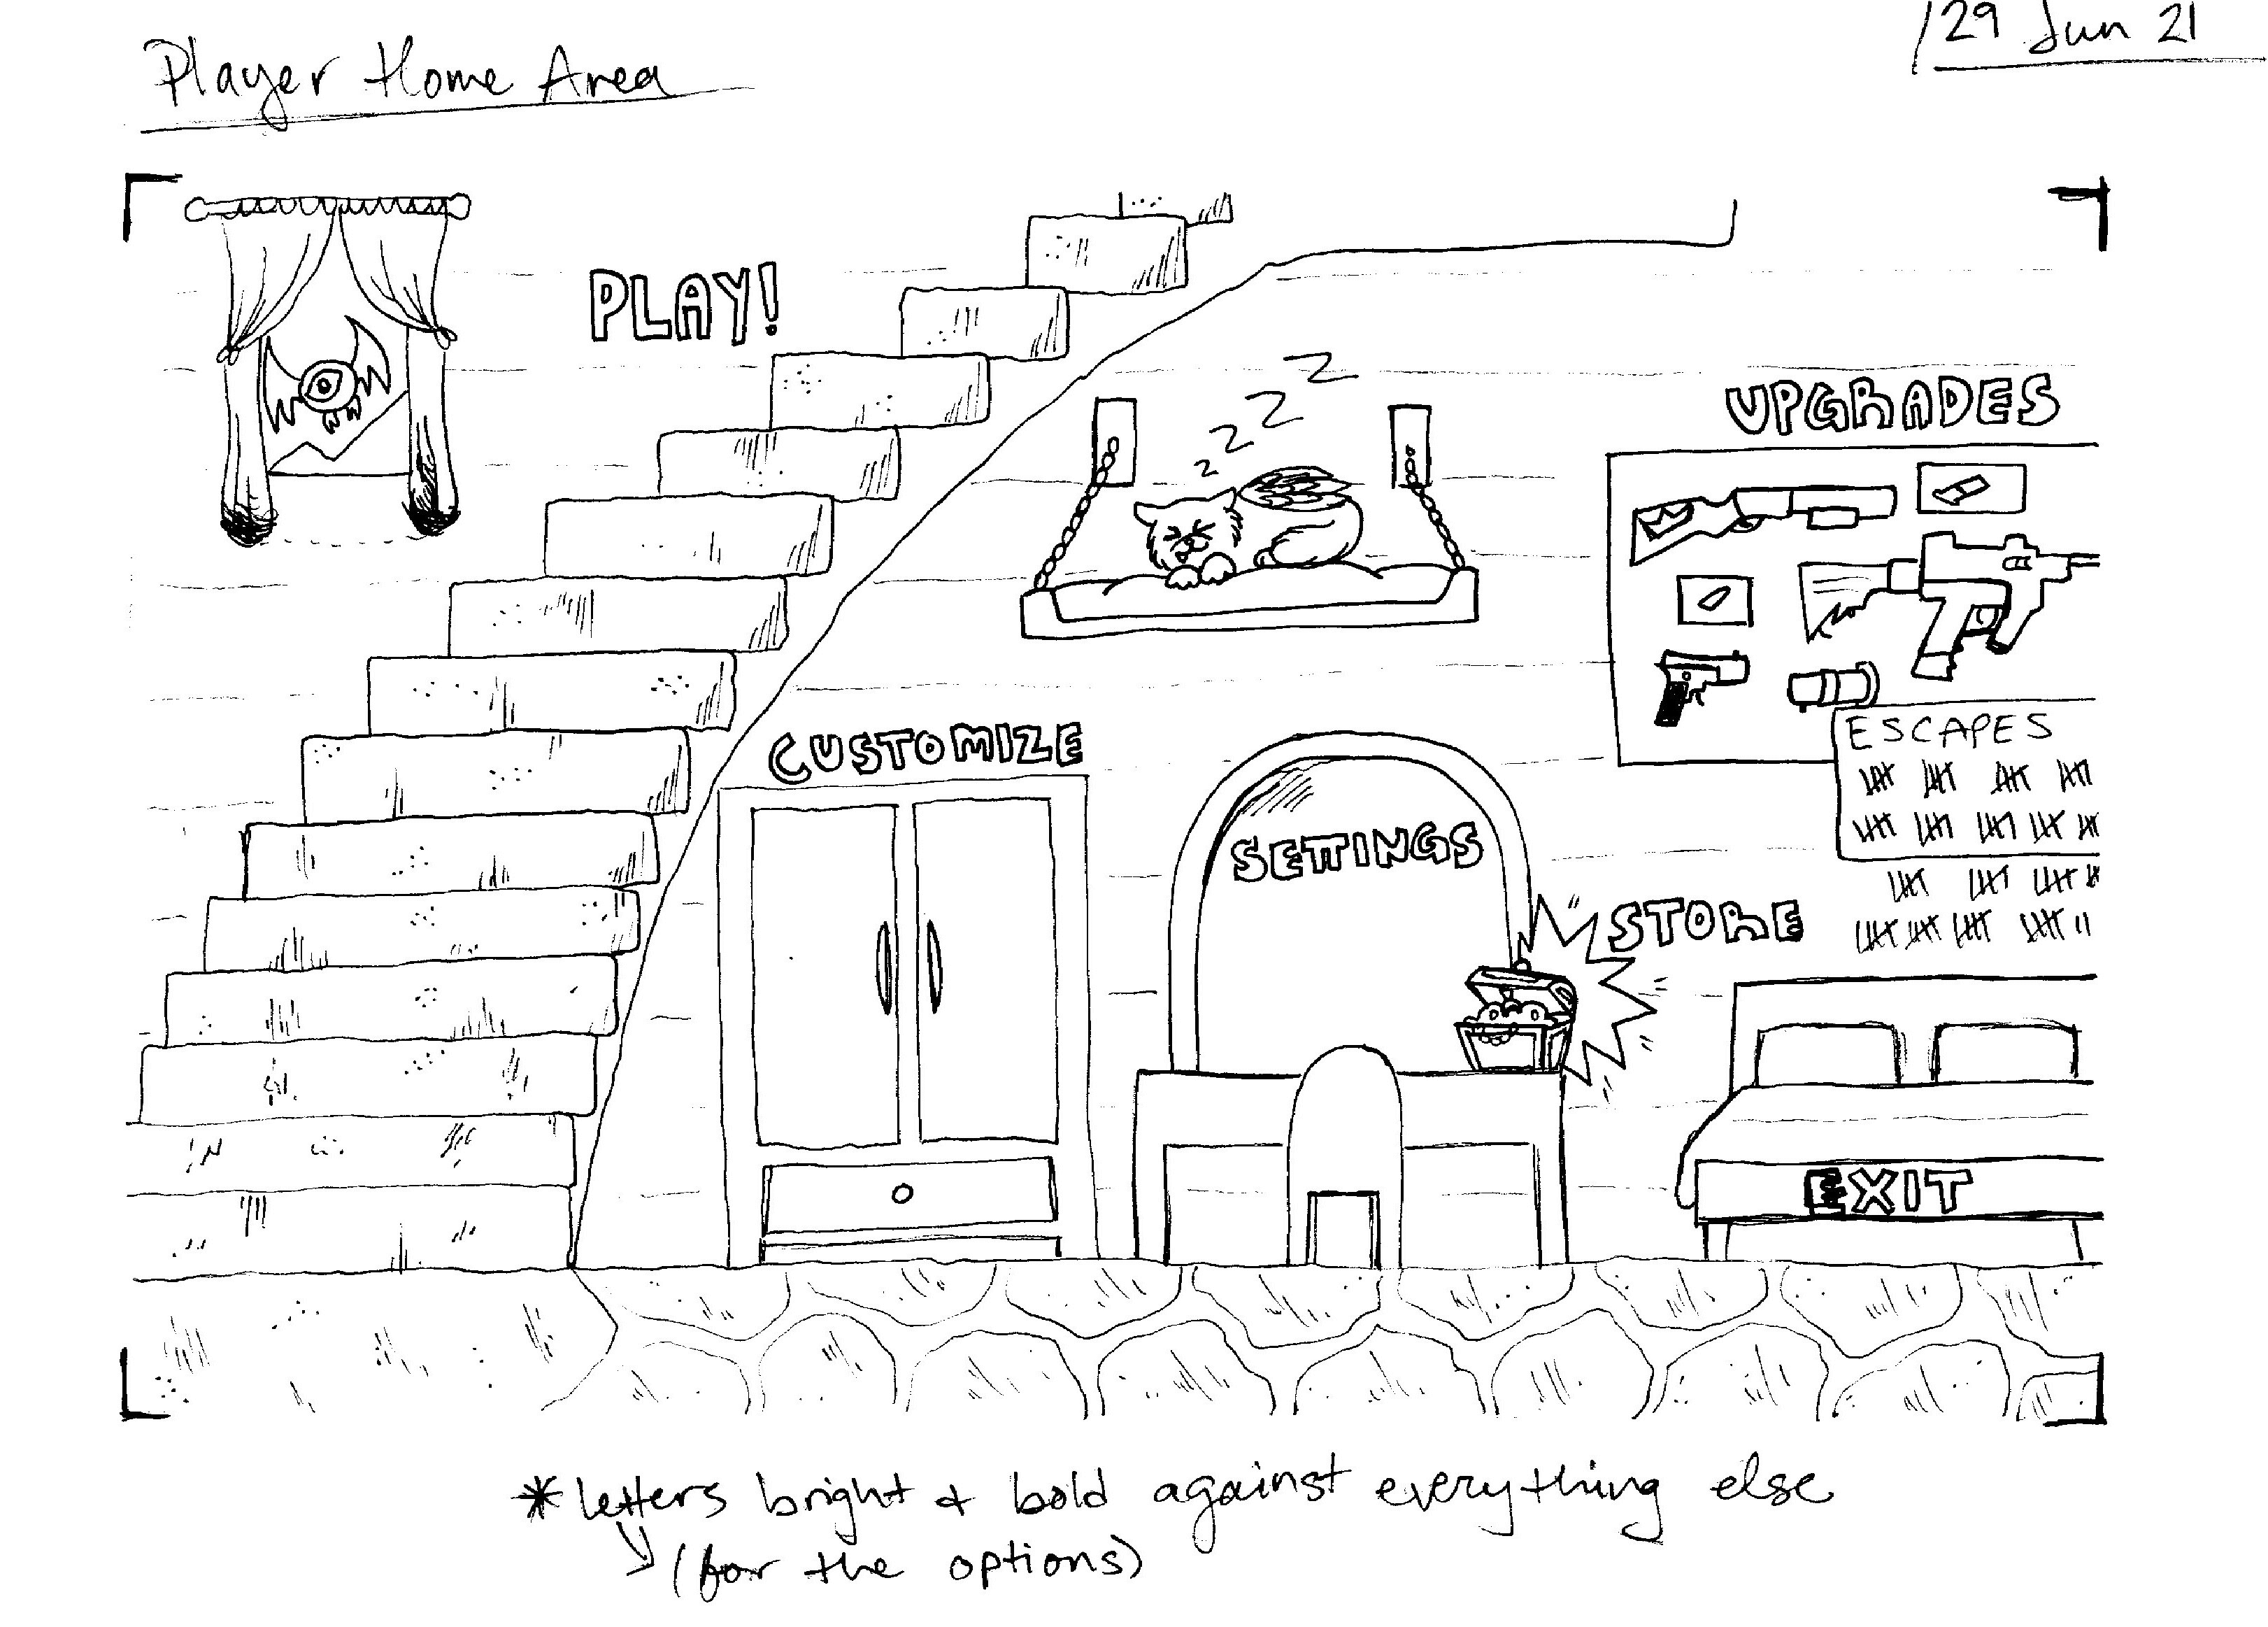 Player Home Area
29 Jun 21
PLAY!
z z z z
UPGRADES
ESCAPES
CUSTOMIZE
SETTINGS
STORE
EXIT
* letters bright & bold against everything else
(for the options)